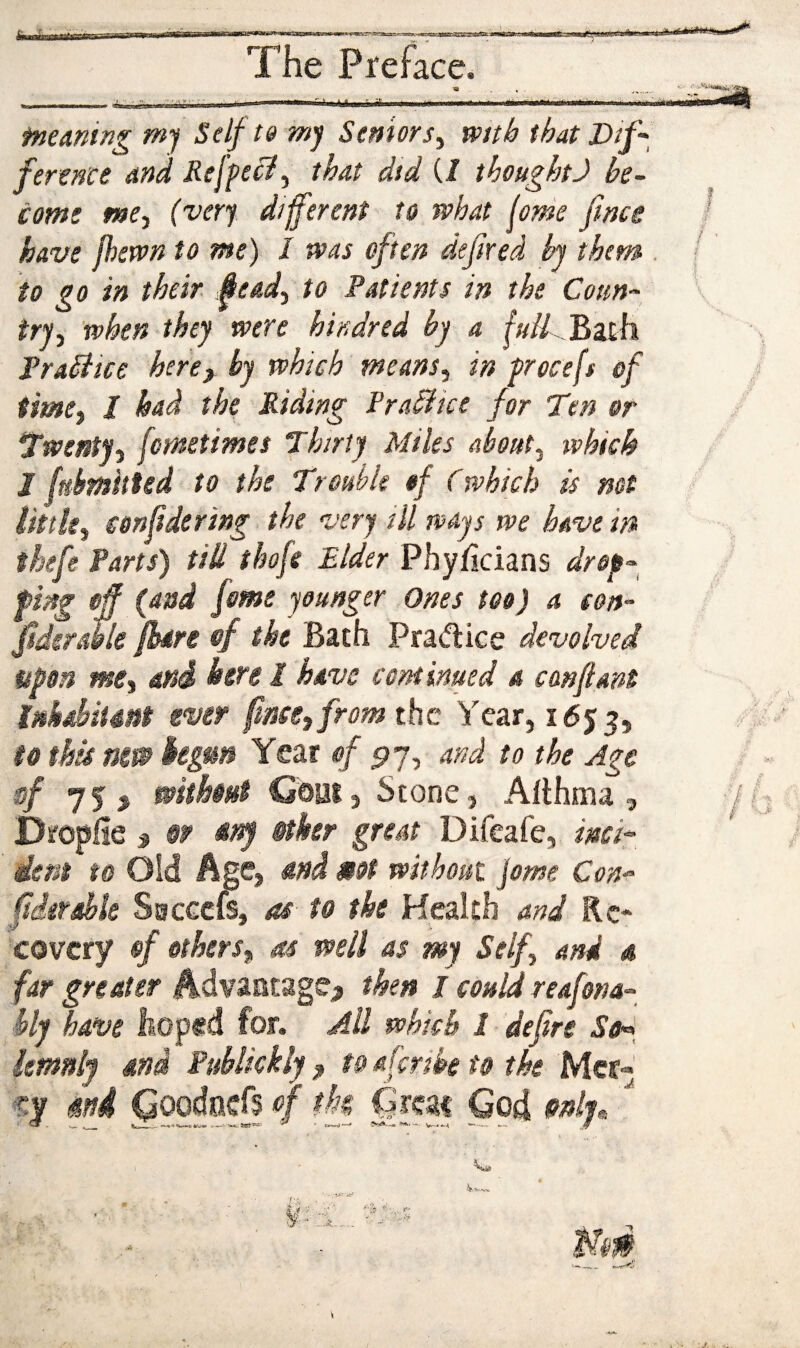 The Preface.
meaning my Self to my Seniors, with that Dif-
ference and Reſpect, that did (I thought) be-
come me, (very different to what ſome ſince
have ſhewn to me) I was often deſired by them
to go in their ſtead, to Patients in the Coun-
try, when they were hindred by a full Bath
Practice here, by which means, in proceſs of
time, I had the Riding Practice for Ten or
Twenty, ſometimes Thirty Miles about, which
I ſubmitted to the Trouble of (which is not
little, conſidering the very ill ways we have in
theſe Parts) till thoſe Elder Phyſicians drop-
ping off (and ſome younger Ones too) a con-
ſiderable ſhare of the Bath Practice devolved
upon me, and here I have continued a conſtant
Inhabitant ever ſince, from the Year, 1653,
to this new begun Year of 97, and to the Age
of 75, without Gout, Stone, Aſthma,
Dropſie, or any other great Diſeaſe, inci-
dent to Old Age, and not without ſome Con-
ſiderable Succeſs, as to the Health and Re-
covery of others, as well as my Self, and a
far greater Advantage, then I could reaſona-
bly have hoped for. All which I deſire So-
lemnly and Publickly, to aſcribe to the Mer-
cy and Goodneſs of the Great God only.
Now